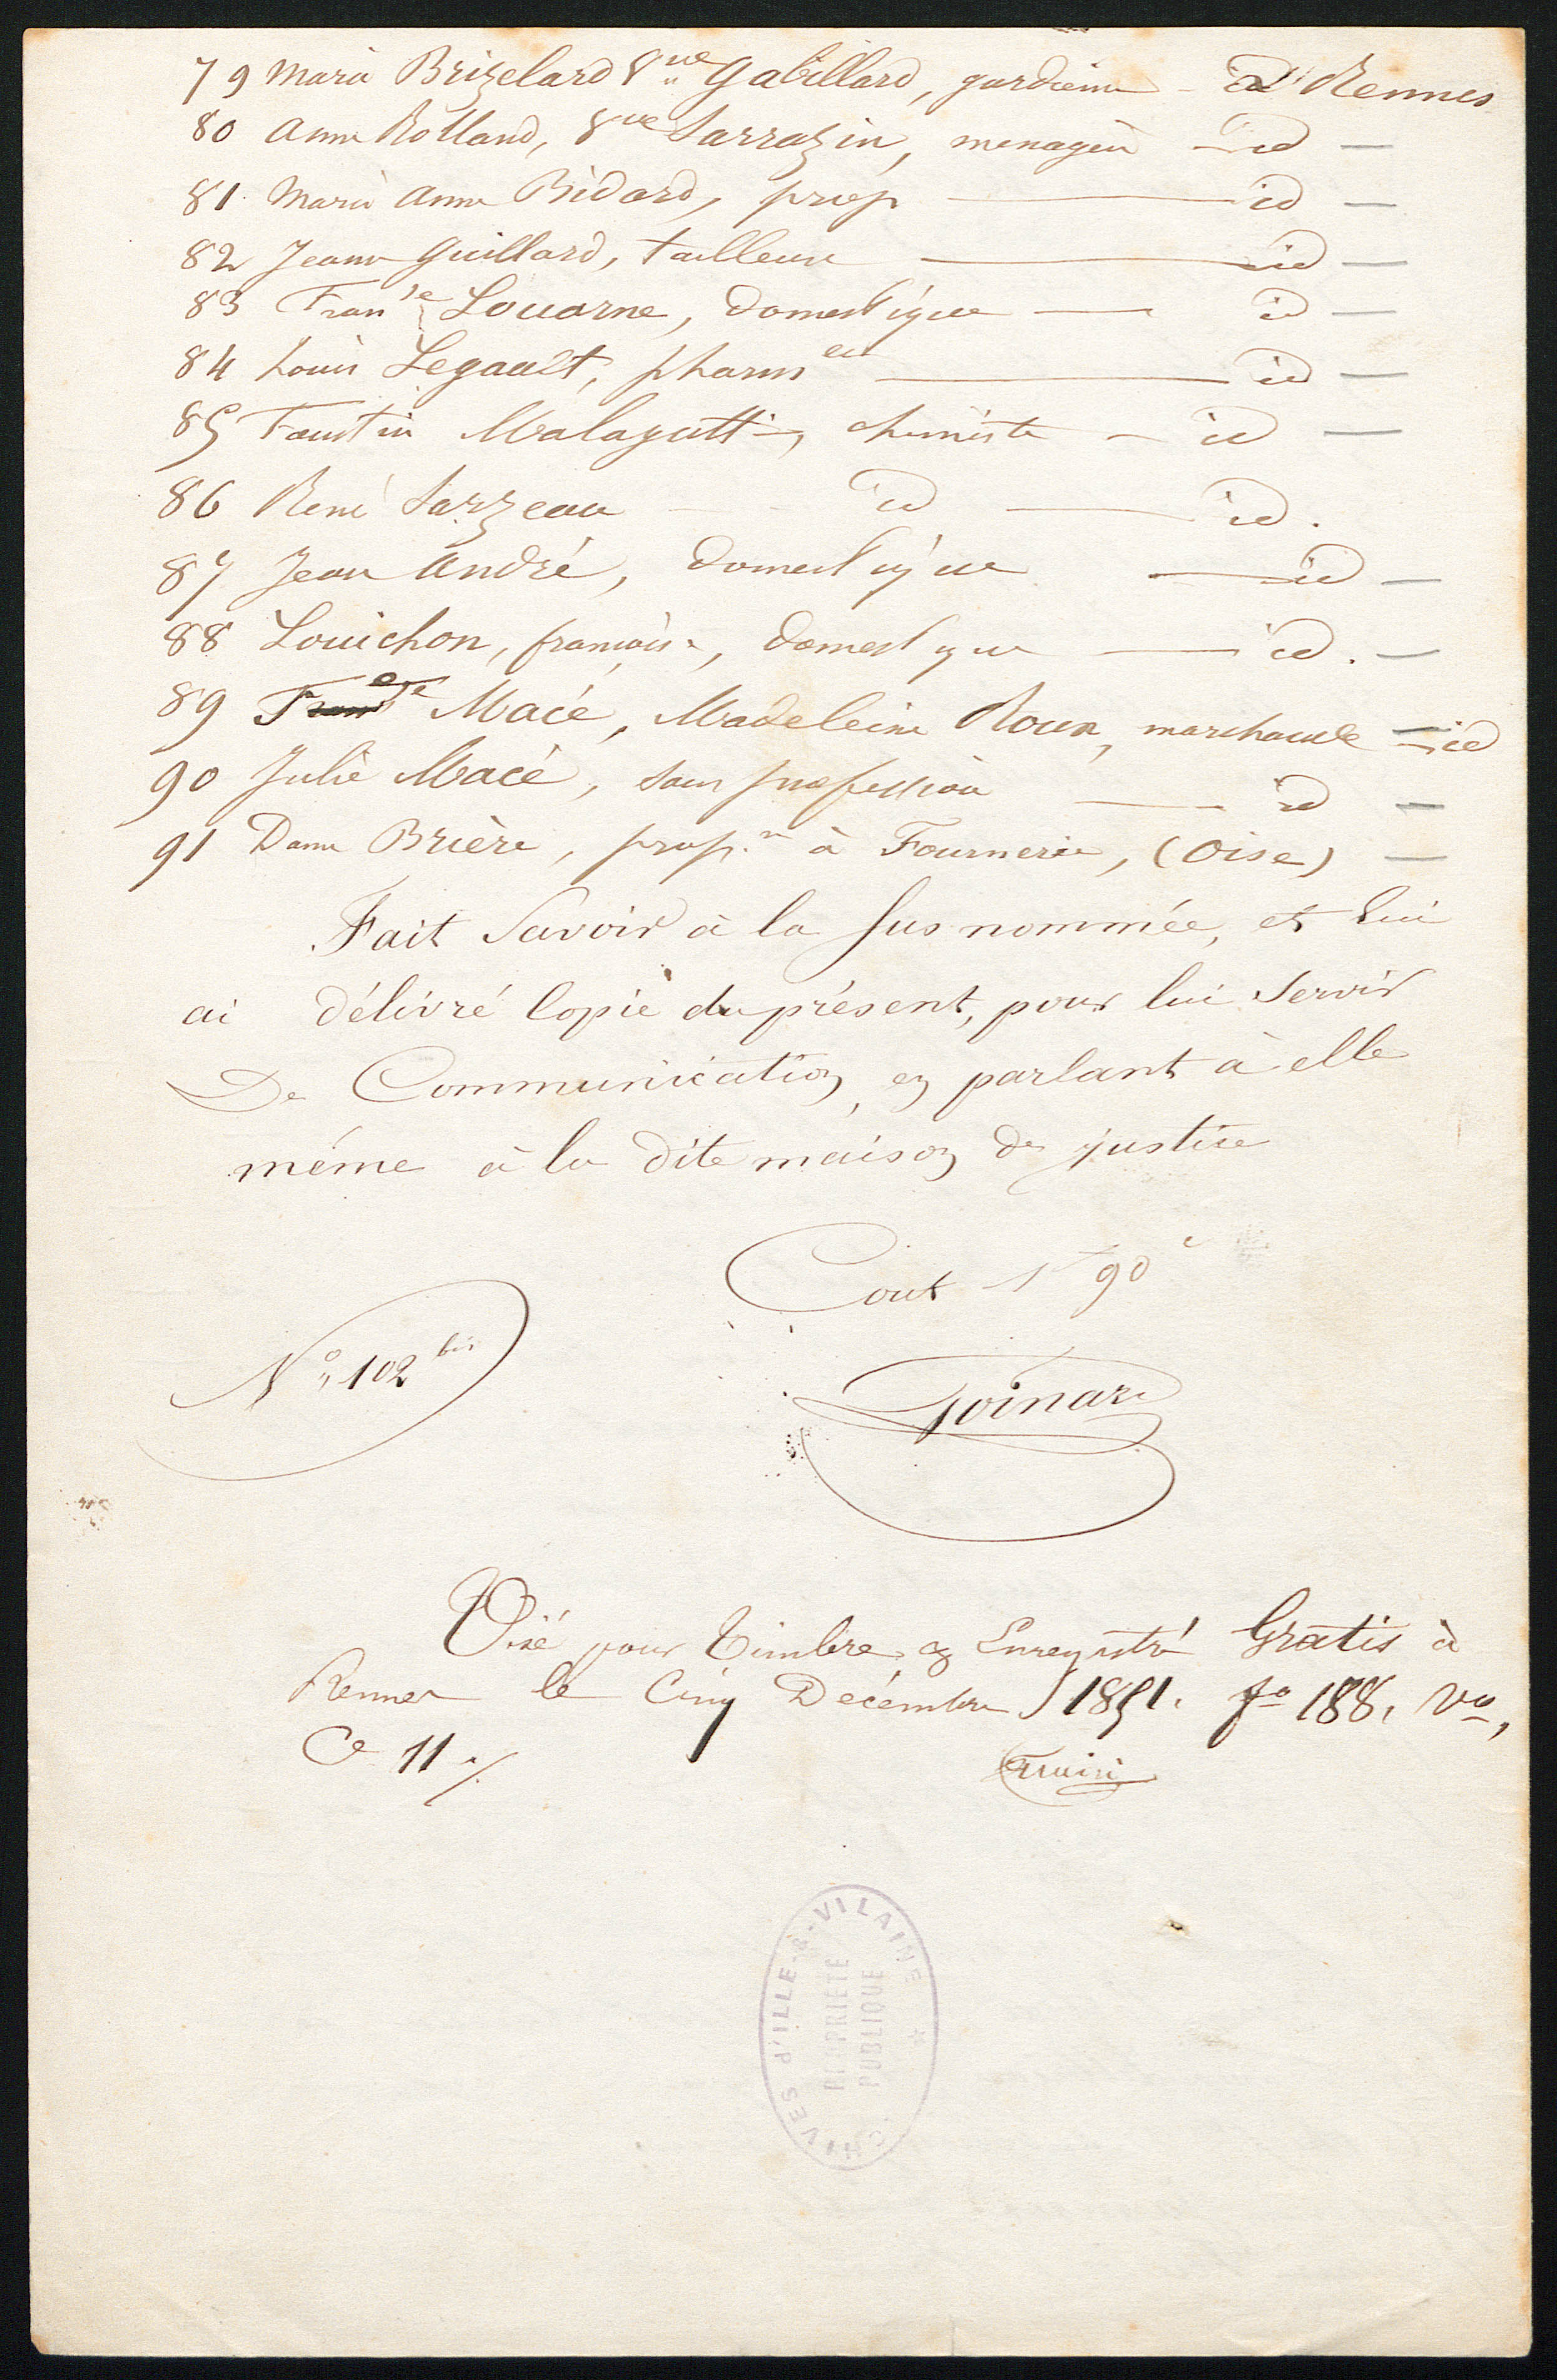 79 Marie Brizelard Vve Gabillard, gardienne - id Rennes
80 Anne Rolland, Vve Sarrazin, menagère - id -
81 Marie Anne Bidard, prop - id -
82 Jeanne Guillard, tailleuse - id -
83 Franse Louarne, domestique - id -
84 Louis Legault, pharmen - id -
85 Faustin Malagutti, chimiste - id -
86 René Sarzeau - id - id.
87 Jean André, domestique - id -
88 Louichon, françoise, domestique - id. -
89 Macé, Madeleine Roux, marchande - id
90 Julie Macé, sans profession - id -
91 Dame Brière, prop.re à Fournerie, (Oise) -
Fait Savoir à la Susnommée, et lui
ai délivré Copie du présent, pour lui Servir
De Communication, en parlant à elle
même à la dite maison de justice
Cout 1f 90c
No 102 bis
Visé pour Timbre & Enregistré Gratis à
Rennes le Cinq Décembre 1851. fo 188, Vo,
Ce 11 ./.
CHIVES d'ILLE-&-VILAINE
PROPRIETE
PUBLIQUE